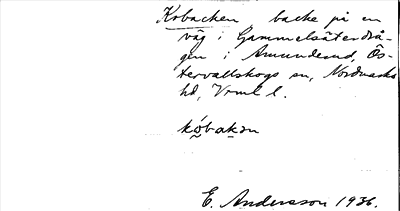 Kobacken backe på en
väg i Gammelsäterdrå-
gen i Amunderud, Ös-
tervallskogs sn, Nordmarks
hd, Vrml l.
kóbakən
E. Andersson 1936.